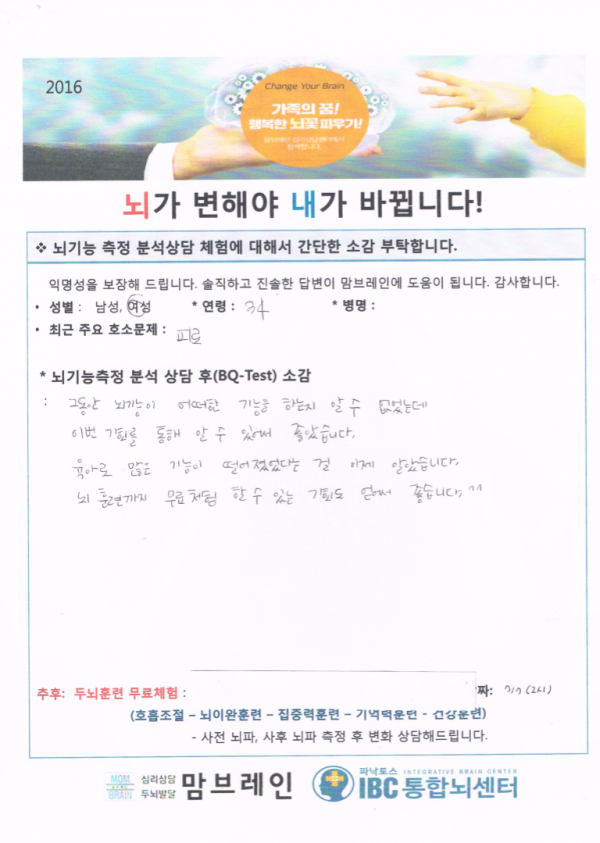 2016
Change Your Brain
가족의 꿈!
행복한 뇌꽃 피우기!
뇌가 변해야 내가 바뀝니다!
❖ 뇌기능 측정 분석상담 체험에 대해서 간단한 소감 부탁합니다.
익명성을 보장해 드립니다. 솔직하고 진솔한 답변이 맘브레인에 도움이 됩니다. 감사합니다.
• 성별 : 남성, 여성 * 연령 : 34 * 병명 :
• 최근 주요 호소문제 : 피로
* 뇌기능측정 분석 상담 후(BQ-Test) 소감
: 그동안 뇌기능이 어떠한 기능을 하는지 알 수 없었는데
이번 기회를 통해 알 수 있어서 좋았습니다.
육아로 많은 기능이 떨어졌었다는 걸 이제 알았습니다.
뇌 훈련까지 무료체험 할 수 있는 기회도 얻어서 좋습니다^^
추후: 두뇌훈련 무료체험 : 짜: 7/7 (2시)
(호흡조절 – 뇌이완훈련 – 집중력훈련 – 기억력훈련 - 건강훈련)
- 사전 뇌파, 사후 뇌파 측정 후 변화 상담해드립니다.
MOM
BRAIN
심리상담
두뇌발달
맘브레인
파낙토스 INTEGRATIVE BRAIN CENTER
IBC 통합뇌센터